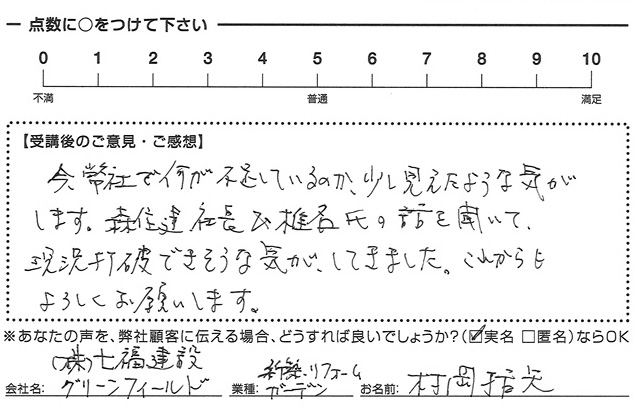 点数に○をつけて下さい
0 1 2 3 4 5 6 7 8 9 10
不満 普通 満足
【受講後のご意見・ご感想】
今、弊社で何が不足しているのか、少し見えたような気が
します。森住建社長及椎名氏の話を聞いて、
現況打破できそうな気が、してきました。これからも
よろしくお願いします。
※あなたの声を、弊社顧客に伝える場合、どうすれば良いでしょうか?(☑実名 □匿名)ならOK
(株)七福建設 新築・リフォーム
会社名: グリーンフィールド 業種: ガーデン お名前: 村岡